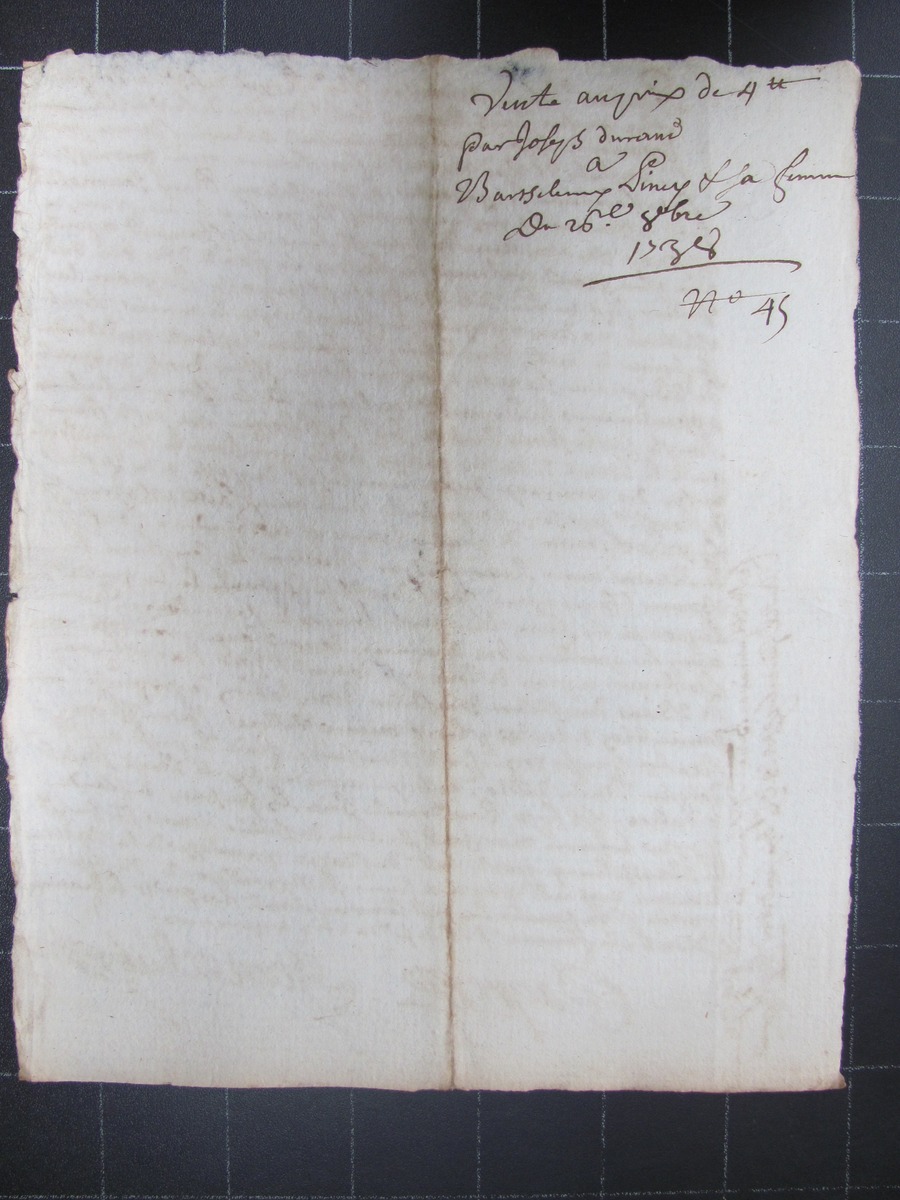 Vente au prix de 4 ₶
Par Joseph durand
a
Barthelemy Piney & sa femme
Du 26.e 8bre
1738
No 45